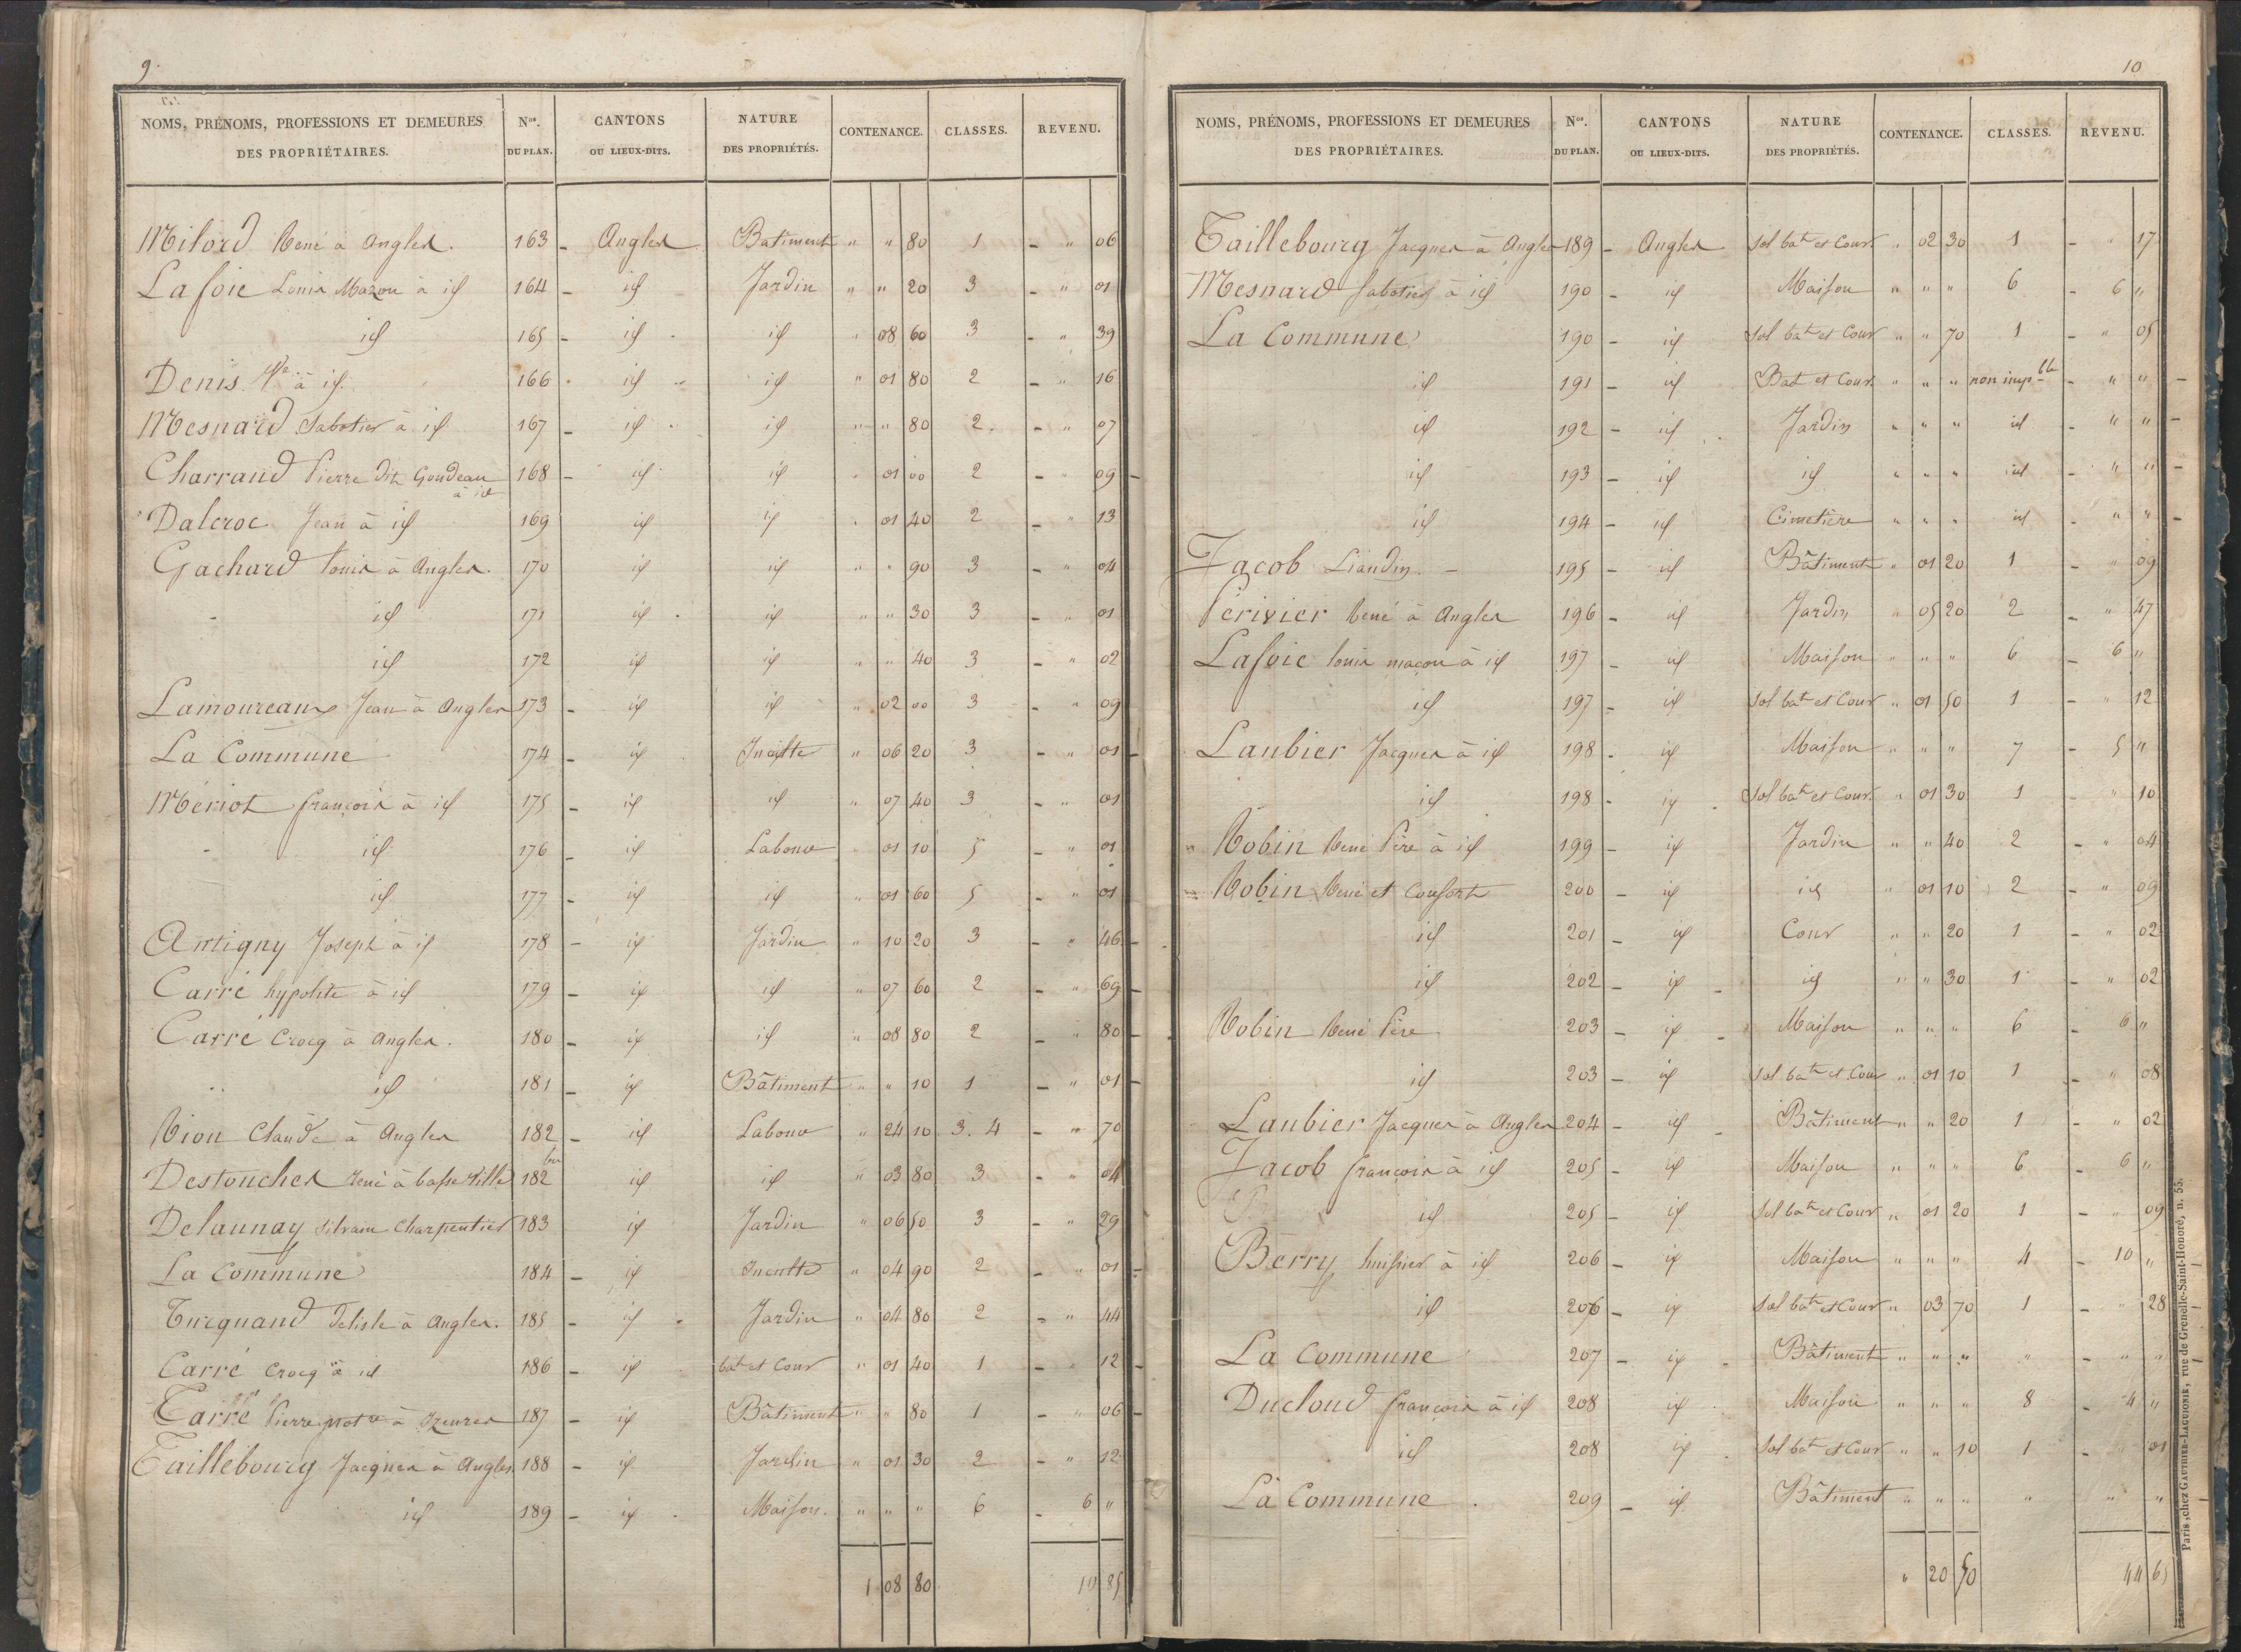 9.
NOMS, PRÉNOMS, PROFESSIONS ET DEMEURES DES PROPRIÉTAIRES. Nos. DU PLAN. CANTONS OU LIEUX-DITS. NATURE DES PROPRIÉTÉS. CONTENANCE. CLASSES. REVENU.
Milord René à Angles. 163 - Angles Batiment " " 80 1 - " 06
Lafoie Louis Mazon à id 164 - id Jardin " " 20 3 - " 01
id 165 - id - id " 08 60 3 - " 39
Denis Ve à id. 166 - id - id " 01 80 2 - " 16
Mesnard Sabotier à id 167 - id - id " " 80 2. - " 07
Charraud Pierre dit Goudeau à id 168 - id id " 01 00 2 - " 09 -
Dalcroc Jean à id 169 id id " 01 40 2 - " 13
Gachard Louis à Angles. 170 id id " " 90 3 - " 04
- id 171 id - id " " 30 3 - " 01
id 172 id id " " 40 3 - " 02
Lamoureaux Jean à Angles 173 - id id " 02 00 3 - " 09
La Commune 174 - id Inculte " 06 20 3 - " 01 -
Mériot françois à id 175 - id id " 07 40 3 - " 01
- id 176 - id Labour " 01 10 5 - " 01
id 177 - id id " 01 60 5 - " 01
Antigny Joseph à id 178 - id Jardin " 10 20 3 - " 46 -
Carré hypolite à id 179 - id id " 07 60 2 - " 69 -
Carré Crocq à Angles. 180 - id id " 08 80 2 - " 80 -
id 181 - id Bâtiment " " 10 1 - " 01 -
Vion Claude à Angles 182 - id Labour " 24 10 3. 4 - " 70
Destouches René à basse ville 182 bis id id " 03 80 3 - " 04
Delaunay Silvain Charpentier 183 id Jardin " 06 50 3 - " 29
La Commune 184 - id Inculte " 04 90 2 - " 01 -
Turquand Delisle à Angles. 185 - id - Jardin " 04 80 2 - " 44
Carré Crocq à id 186 - id bat et Cour " 01 40 1 - " 12 -
Carré Pierre notre à Izeures 187 - id Bâtiment " " 80 1 - " 06 -
Taillebourg Jacques à Angles 188 - id Jardin " 01 30 2 - " 12
id 189 - id - Maison. " " " 6 - 6 "
1 08 80 10 85
10
NOMS, PRÉNOMS, PROFESSIONS ET DEMEURES DES PROPRIÉTAIRES. Nos. DU PLAN. CANTONS OU LIEUX-DITS. NATURE DES PROPRIÉTÉS. CONTENANCE. CLASSES. REVENU.
Taillebourg Jacques à Angles 189 - Angles Sol bat et Cour. " 02 30 1 - " 17
Mesnard Sabotier à id 190 - id Maison " " " 6 - 6 "
La Commune 190 - id Sol bat et Cour " " 70 1 - " 05
id 191 - id Bat et Cour. " " " non impble - " " -
id 192 - id Jardin " " " id - " " -
id 193 - id id " " " id - " " -
id 194 - id Cimetière " " " id - " " -
Jacob Liandin. - 195 - id Bâtiment " 01 20 1 - " 09
Périvier René à Angles 196 - id Jardin " 05 20 2 - " 47
Lafoie louis maçon à id 197 - id Maison " " " 6 - 6 "
id 197 - id Sol bat et Cour " 01 50 1 - " 12
Laubier Jacques à id 198 - id Maison " " " 7 - 5 "
id 198 - id Sol bat et Cour. " 01 30 1 - " 10
Robin René Père à id 199 - id Jardin " " 40 2 - " 04
Robin René et Consorts 200 - id id " 01 10 2 - " 09
id 201 - id Cour " " 20 1 - " 02
id 202 - id - id " " 30 1 - " 02
Robin René Père 203 - id - Maison " " " 6 - 6 "
id 203 - id Sol bat et Cour " 01 10 1 - " 08
Laubier Jacques à Angles 204 - id - Bâtiment " " 20 1 - " 02
Jacob françois à id 205 - id Maison " " " 6 - 6 "
id 205 - id Sol bat et Cour " 01 20 1 - " 09
Berry huissier à id 206 - id Maison " " " 4 - 10 "
id 206 - id Sol bat et Cour " 03 70 1 - " 28 -
La Commune 207 - id - Bâtiment " " " " - " " -
Ducloud françois à id 208 id Maison " " " 8 - 4 "
id 208 id Sol bat et Cour " " 10 1 - " 01
La Commune. 209 - id Bâtiment " " " " " " -
" 20 50 44 65
Paris, chez GAUTHIER-LAGUIONIE, rue de Grenelle-Saint-Honoré, n. 55.